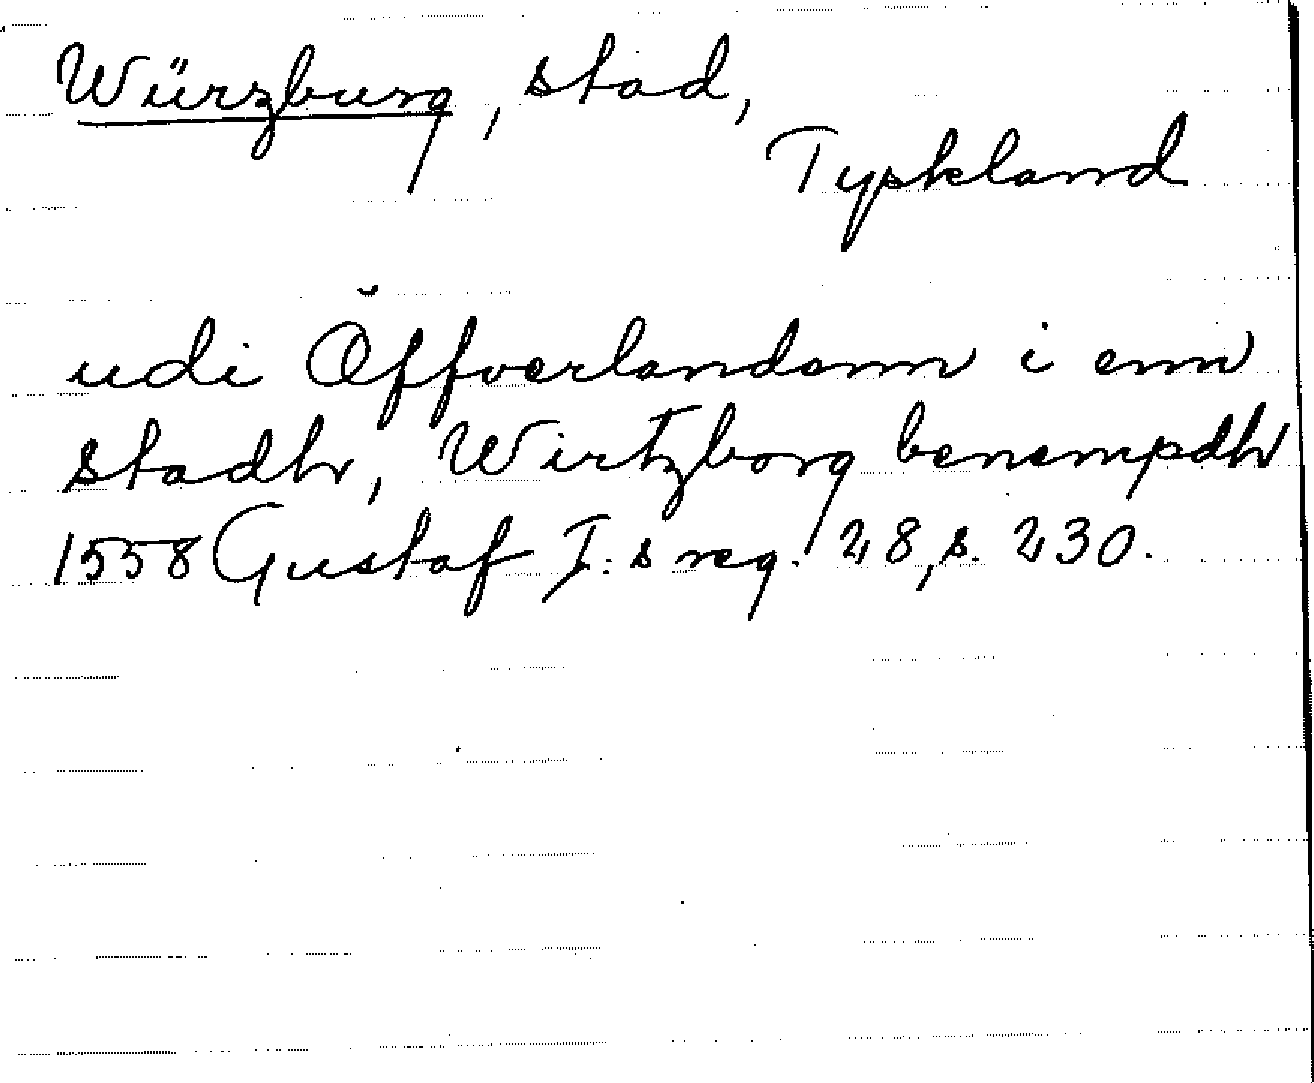 Würzburg, stad,
Tyskland
udi Öffverlandenn i enn
stadh, Wirtzborg benempdh
1558 Gustaf I:s reg. 28, s. 230.